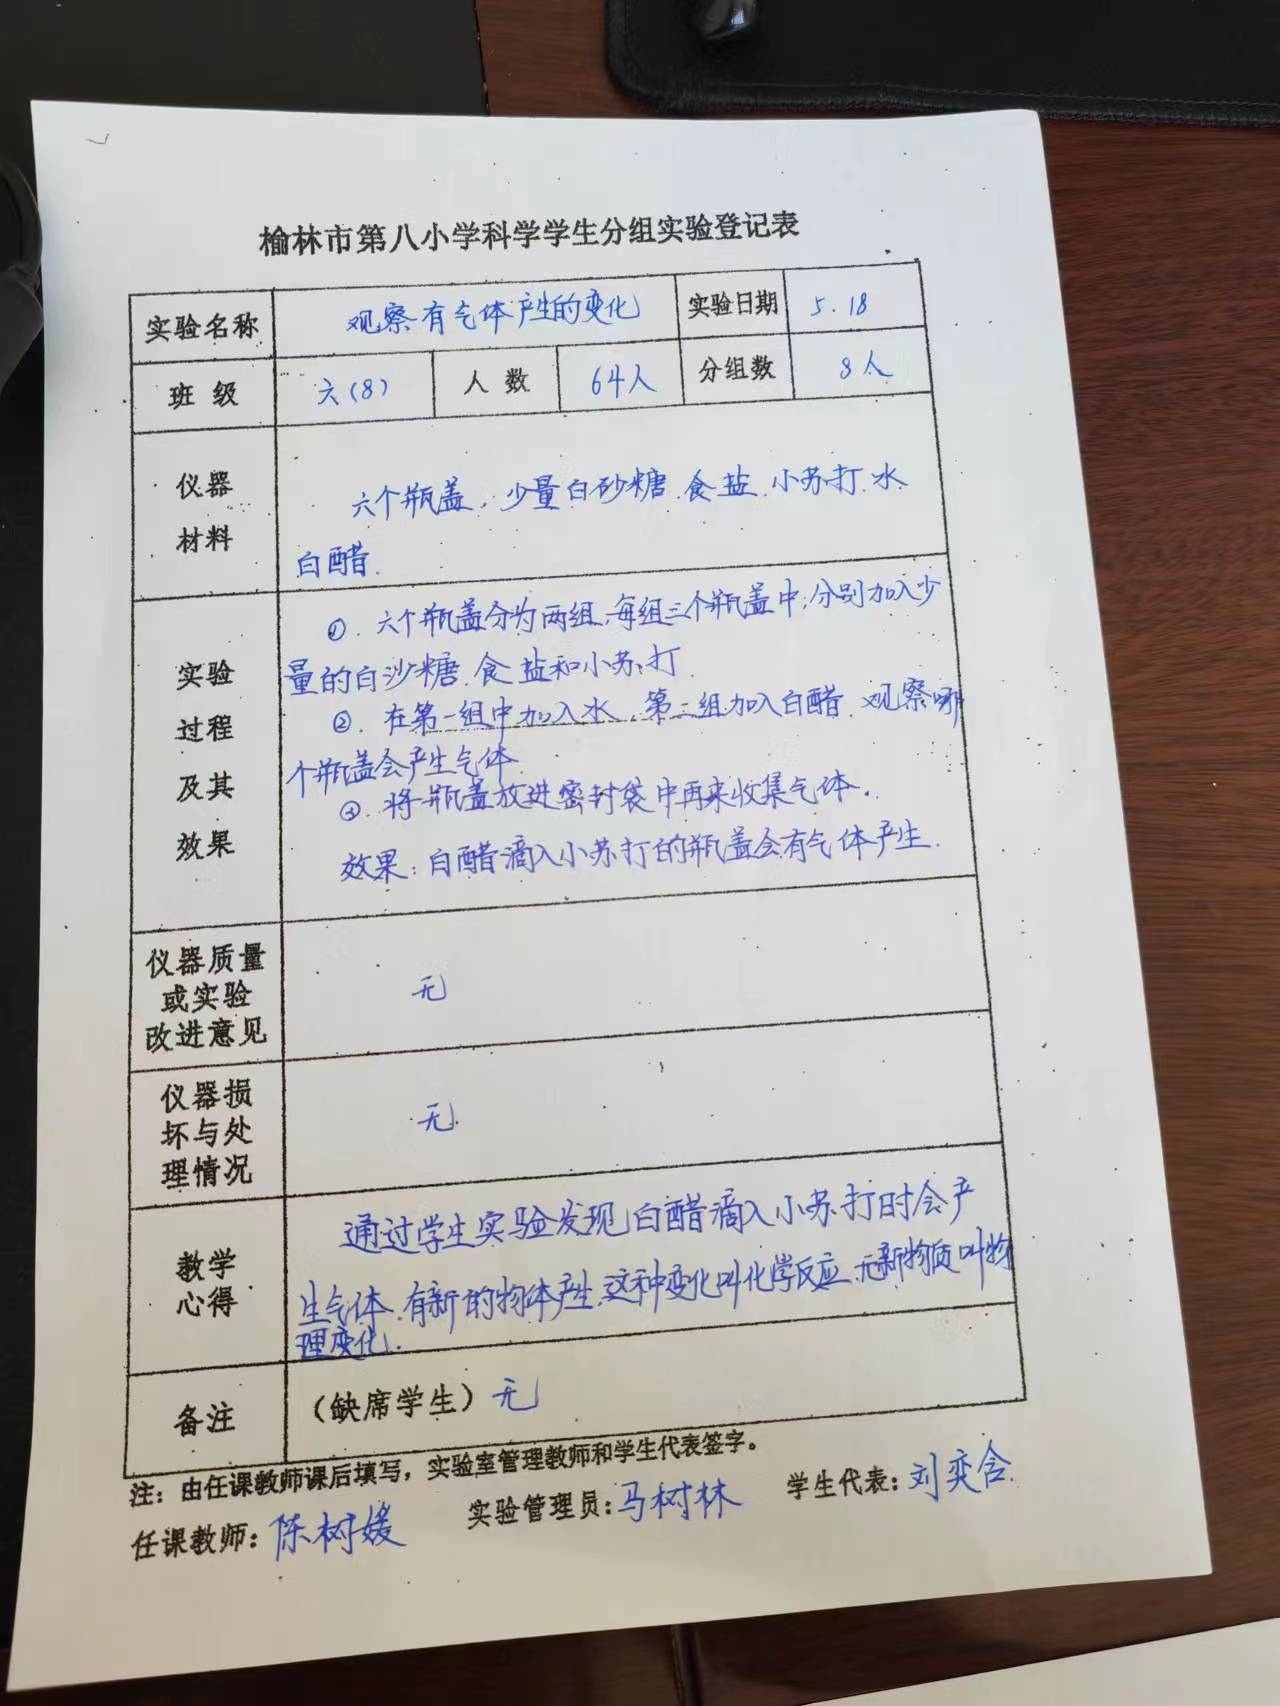 榆林市第八小学科学学生分组实验登记表
实验名称 观察有气体产生的变化 实验日期 5.18
班 级 六(8) 人 数 64人 分组数 8人
仪器
材料
六个瓶盖，少量白砂糖、食盐、小苏打、水
白醋.
实验
过程
及其
效果
①. 六个瓶盖分为两组,每组三个瓶盖中,分别加入少
量的白沙糖、食盐和小苏打
②. 在第一组中加入水，第二组加入白醋、观察哪
个瓶盖会产生气体
③. 将瓶盖放进密封袋中再来收集气体.
效果：白醋滴入小苏打的瓶盖会有气体产生.
仪器质量
或实验
改进意见
无
仪器损
坏与处
理情况
无.
教学
心得
通过学生实验发现,白醋滴入小苏打时会产
生气体、有新的物体产生,这种变化叫化学反应、无新物质叫物
理变化.
备注 （缺席学生）无
注：由任课教师课后填写，实验室管理教师和学生代表签字。
任课教师：陈树媛 实验管理员：马树林 学生代表：刘奕含